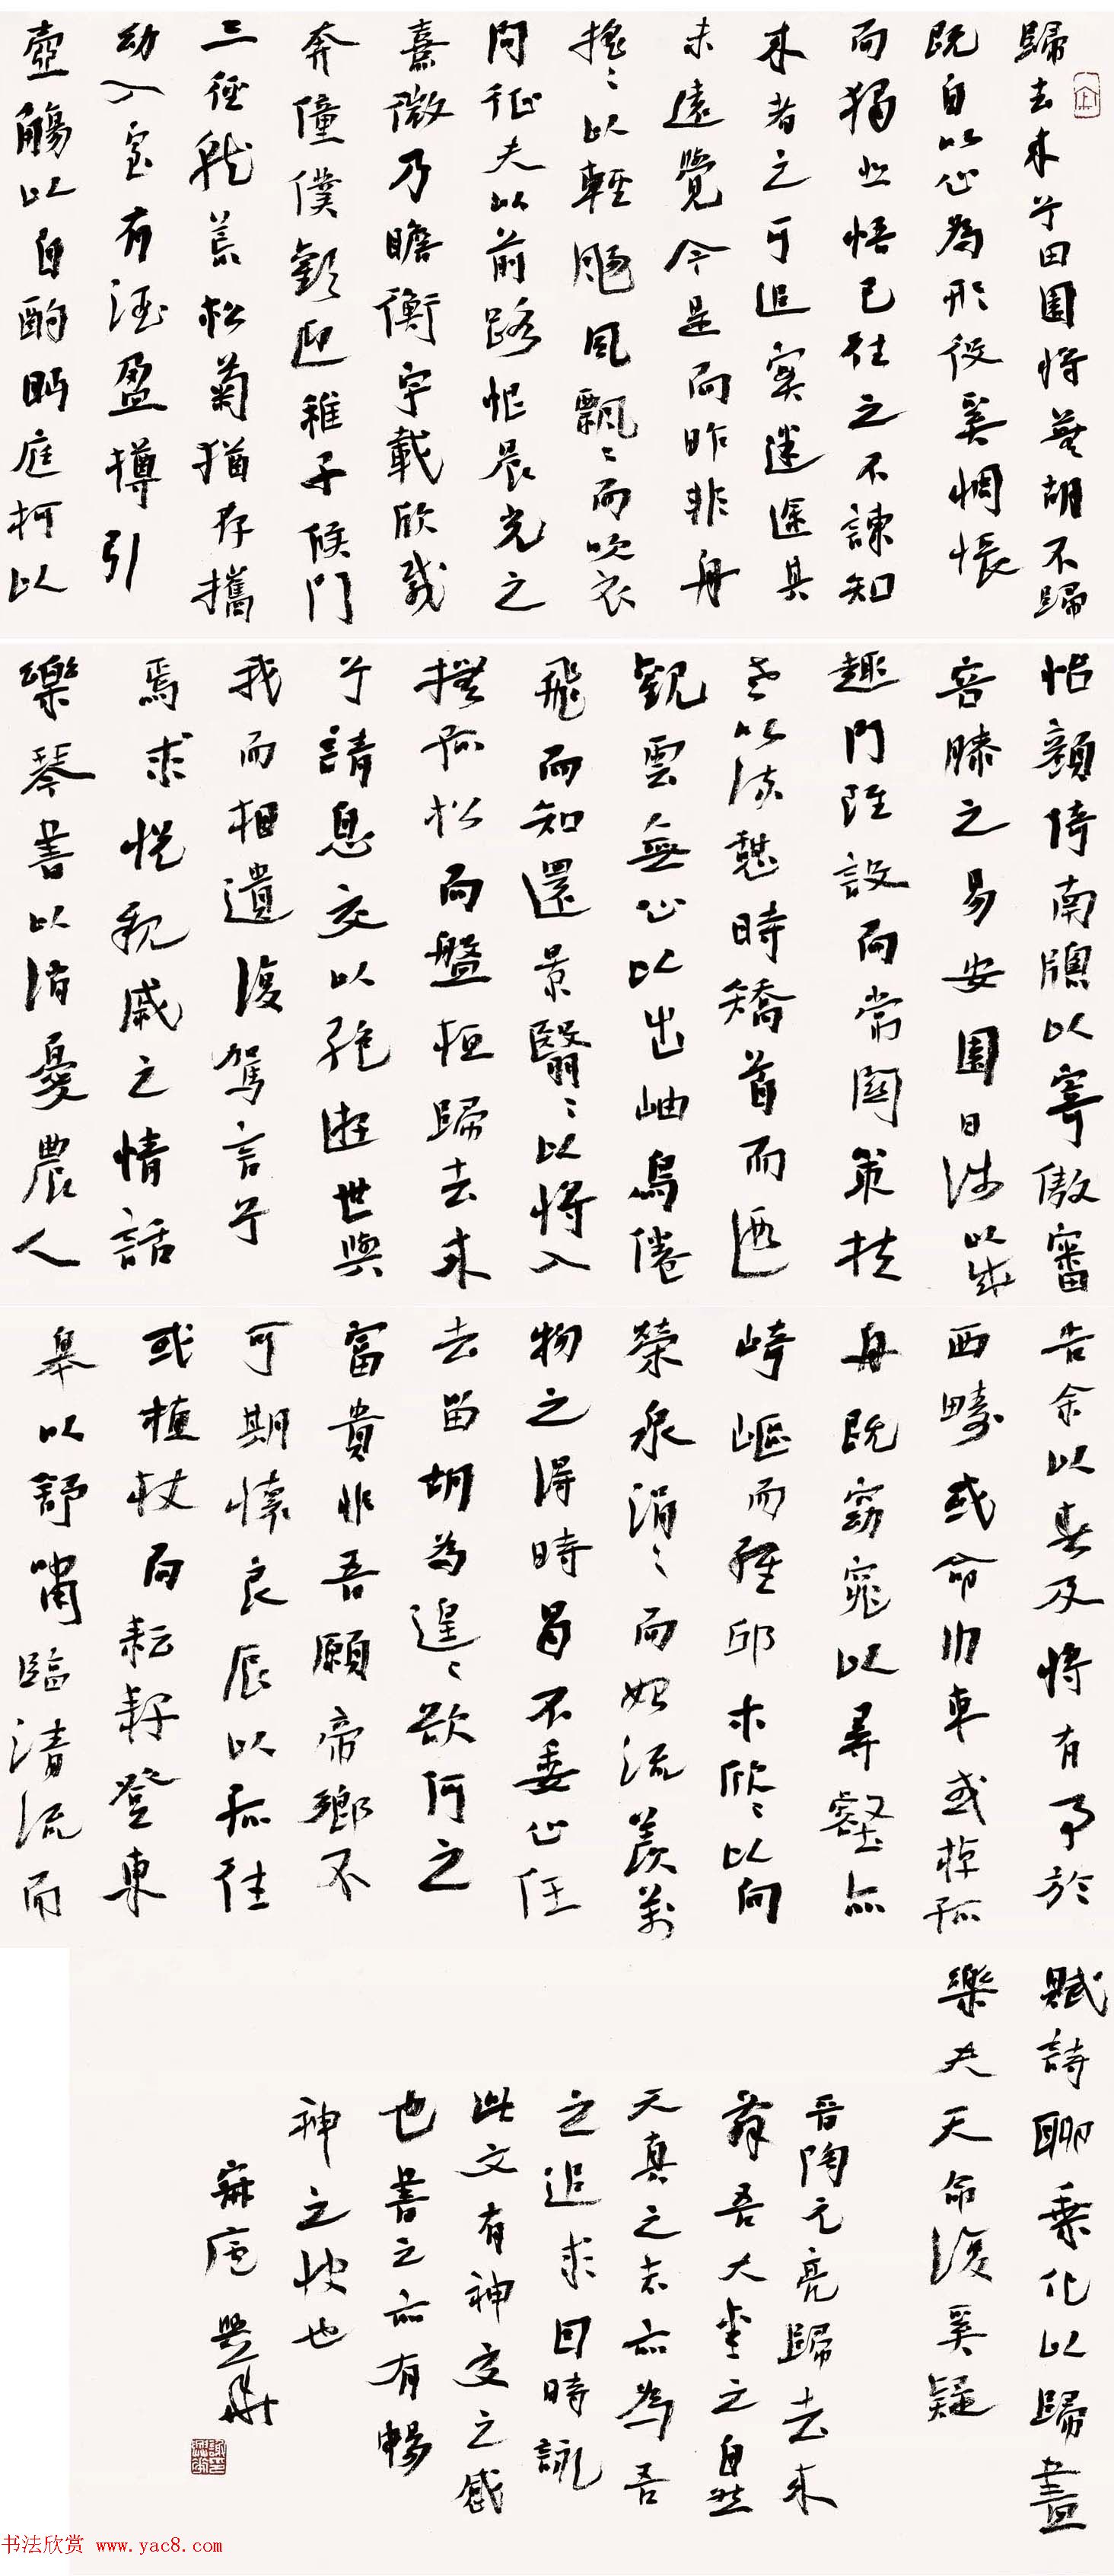 歸去來兮田園將蕪胡不歸
既自以心為形役奚惆悵
而獨悲悟已往之不諫知
來者之可追寔迷途其
未遠覺今是而昨非舟
搖〻以輕颺風飄〻而吹衣
問征夫以前路恨晨光之
熹微乃瞻衡宇載欣載
奔僮僕歡迎稚子候門
三徑就荒松菊猶存攜
幼入室有酒盈樽引
壺觴以自酌眄庭柯以
怡顏倚南牕以寄傲審
容膝之易安園日涉以成
趣門雖設而常關策扶
老以流憩時矯首而遐
觀雲無心以出岫鳥倦
飛而知還景翳〻以將入
撫孤松而盤桓歸去來
兮請息交以絕遊世與
我而相遺復駕言兮
焉求悅親戚之情話
樂琴書以消憂農人
告余以春及將有事於
西疇或命巾車或棹孤
舟既窈窕以尋壑亦
崎嶇而經邱木欣〻以向
榮泉涓〻而始流羨萬
物之得時曷不委心任
去留胡為遑〻欲何之
富貴非吾願帝鄉不
可期懷良辰以孤往
或植杖而耘耔登東
皋以舒嘯臨清流而
賦詩聊乘化以歸盡
樂夫天命復奚疑
晉陶元亮歸去來
辭吾大愛之自然
天真之志亦為吾
之追求因時詠
此文有神交之感
也書之亦有暢
神之快也
寐庵
书法欣赏 www.yac8.com